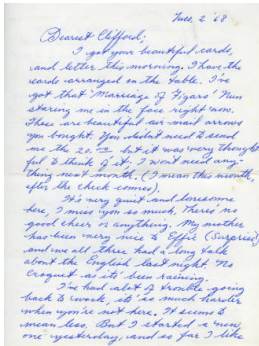 Tues. 2 '68
Dearest Clifford;
I got your beautiful cards,
and letter this morning. I have the
cards arranged on the table. I've
got that 'Marriage of Figaro' Nun
staring me in the face right now.
These are beautiful air mail arrows
you bought. You didn't need to send
me the 20. but it was very thought
ful to think of it. I won't need any-
thing next month. (I mean this month,
after the check comes).
It's very quiet and lonesome
here, I miss you so much. There's no
good cheer or anything. My mother
has been very nice to Effie (Surprise)
and we all three had a long talk
about the English last night. No
Croquet as it's been raining.
I've had alot of trouble going
back to work, it's so much harder
when you're not here. It seems to
mean less. But I started a new
one yesterday, and so far I like